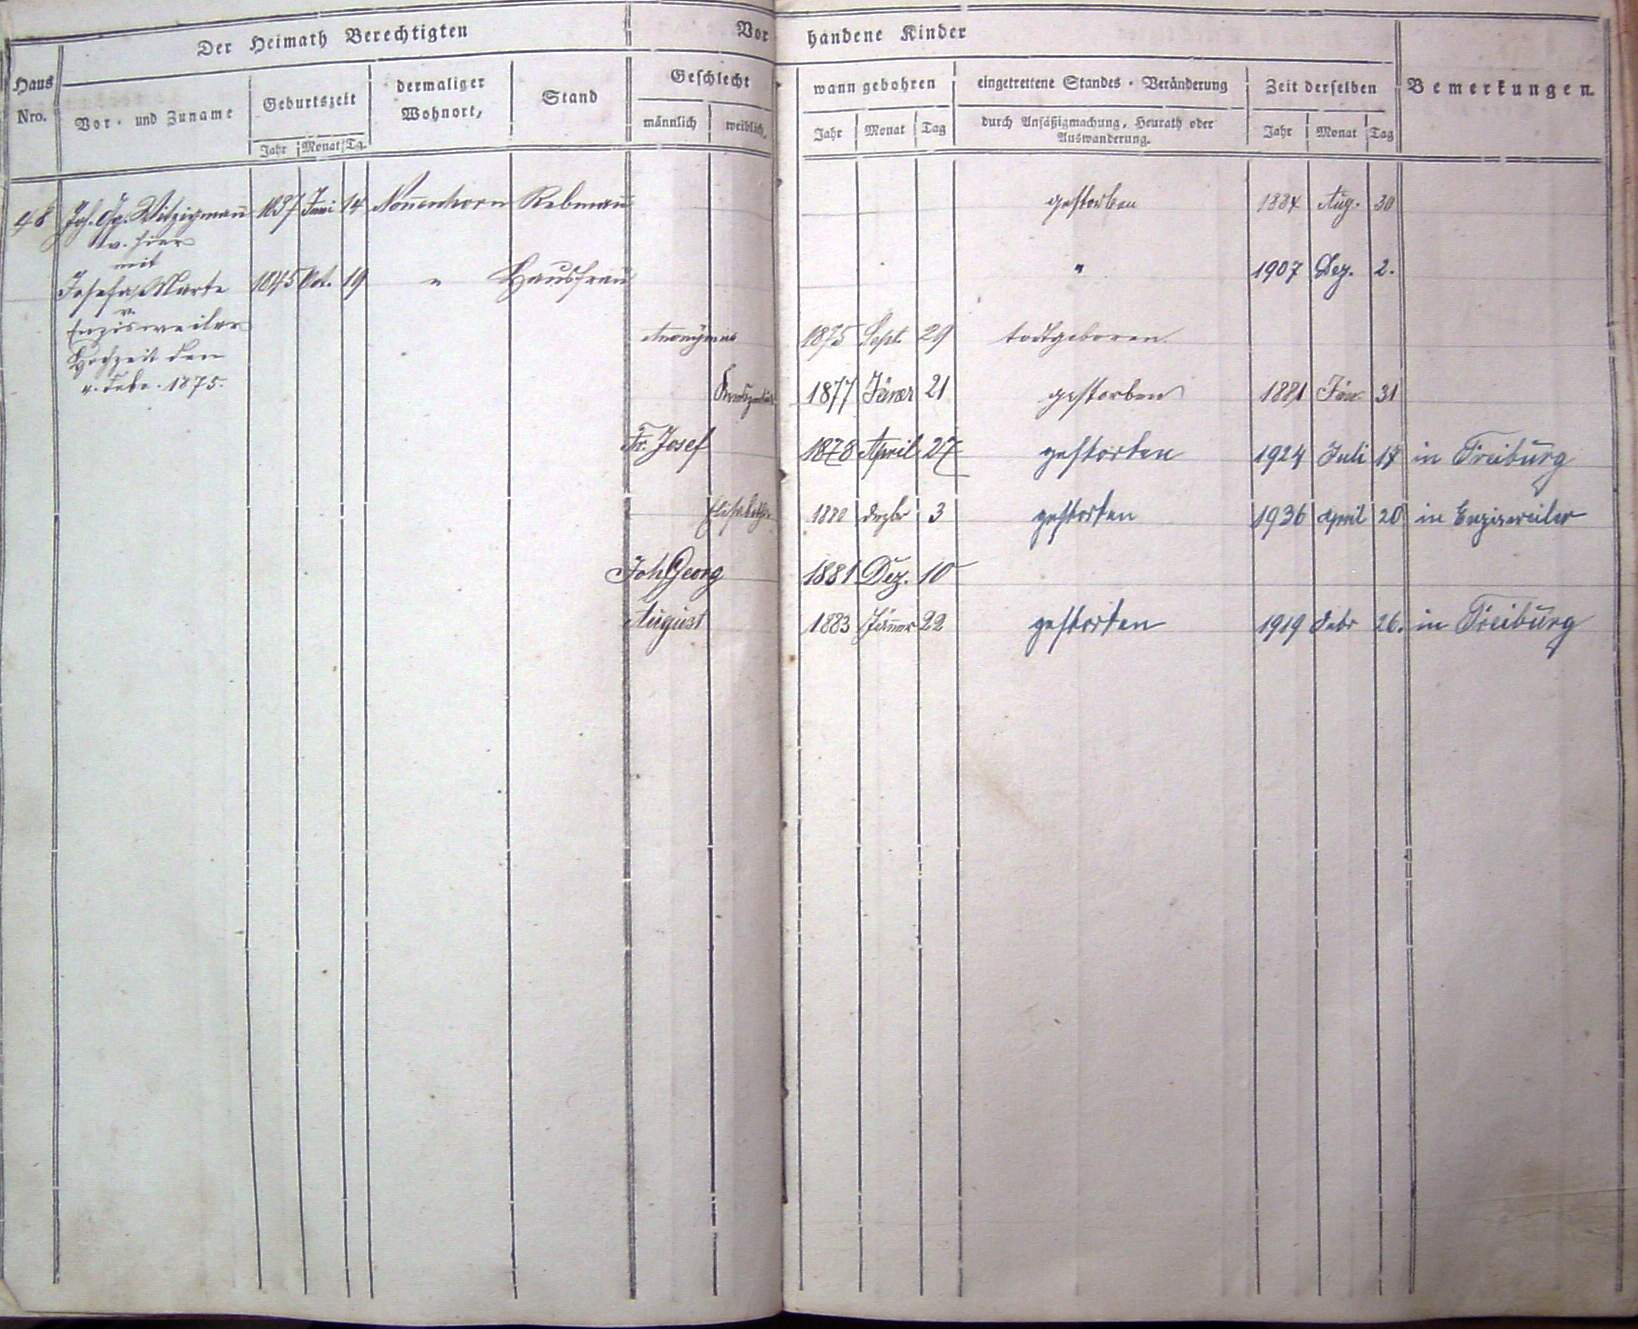 Der Heimath Berechtigten
Vorhandene Kinder
Haus Nro.
Vor- und Zuname
Geburtszeit
Jahr Monat Tg.
dermaliger Wohnort,
Stand
Geschlecht
männlich weiblich,
wann gebohren
Jahr Monat Tag
eingetrettene Standes-Veränderung
durch Ansäßigmachung, Heurath oder Auswanderung.
Zeit derselben
Jahr Monat Tag
Bemerkungen.
48 Joh. Gg. Witzigmann 1837 Juni 14 Nonnenhorn Rebmann gestorben 1884 Aug. 30
v. hier
mit
Josefa Marte 1845 Okt. 19 " Hausfrau " 1907 Dez. 2.
v.
Enzisweiler
Hochzeit den
Febr. 1875.
Anonymus 1875 Sept. 29 todtgeboren.
Kreszentia 1877 Jäner 21 gestorben 1881 Jän. 31
Fr. Josef 1878 April 27 gestorben 1924 Juli in Freiburg
Elisabetha 1880 Dezbr 3 gestorben 1936 April 20 in Enzisweiler
Joh. Georg 1881 Dez. 10
August 1883 Jänner 22 gestorben 1919 Febr 26. in Freiburg